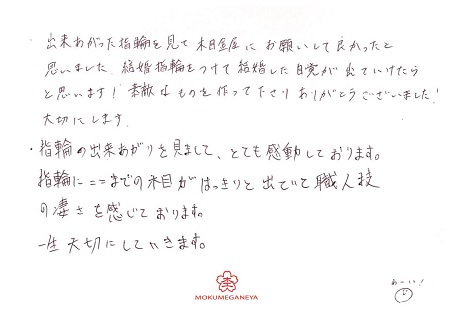 ・出来あがった指輪を見て杢目金屋にお願いして良かったと
思いました。結婚指輪をつけて結婚した自覚が出ていけたら
と思います！素敵なものを作って下さりありがとうございました！
大切にします。
・指輪の出来あがりを見まして、とても感動しております。
指輪にここまでの木目がはっきりと出ていて職人技
の凄さを感じております。
一生大切にしていきます。
MOKUMEGANEYA